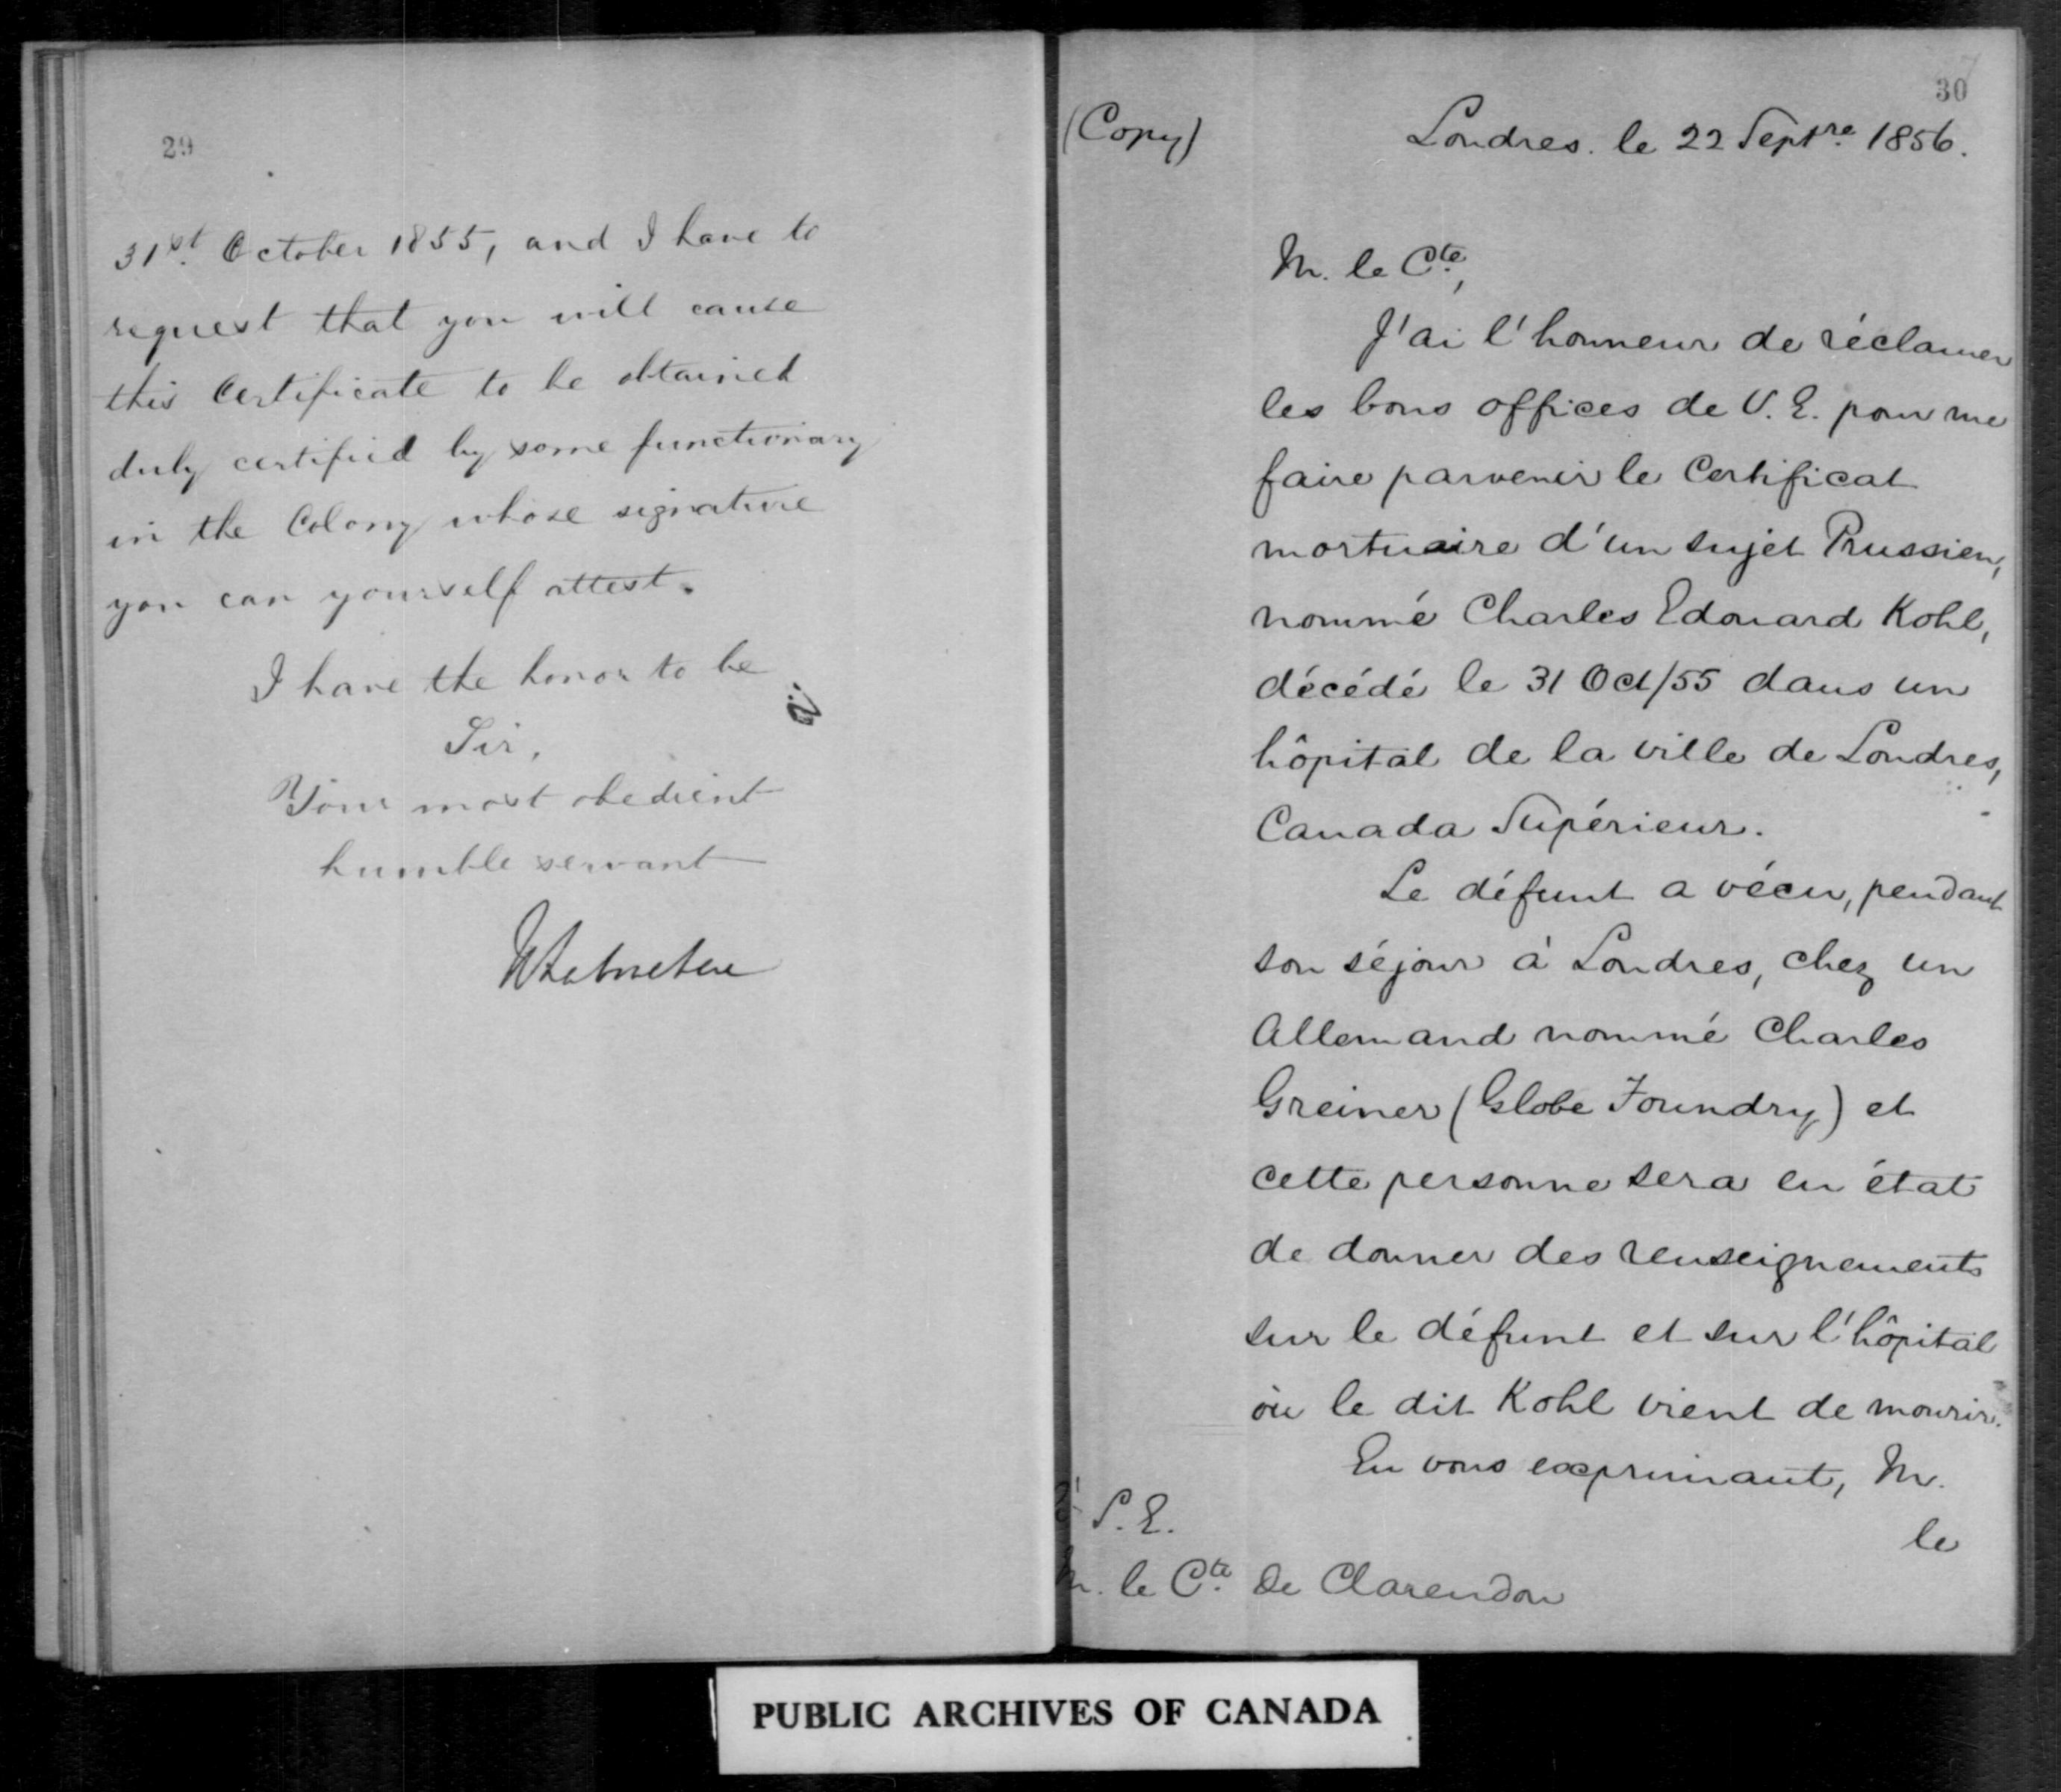 29
31st. October 1855, and I have to
request that you will cause
this Certificate to be obtained
duly certified by some functionary
in the Colony whose signature
you can yourself attest.
I have the honor to be
Sir,
Your most obedient
humble servant
30
(Copy)
Londres. le 22 Septre. 1856.
M. le Cte,
J'ai l'honneur de réclamer
les bons offices de V. E. pour me
faire parvenir le Certificat
mortuaire d'un sujet Prussien,
nommé Charles Edouard Kohl,
décédé le 31 Oct/55 dans un
hôpital de la ville de Londres,
Canada Supérieur.
Le défunt a vécu, pendant
son séjour à Londres, chez un
Allemand nommé Charles
Greiner (Globe Foundry) et
cette personne sera en état
de donner des renseignements
sur le défunt et sur l'hôpital
où le dit Kohl vient de mourir.
En vous exprimant, M.
le
à S. E.
M. le Cte. de Clarendon
PUBLIC ARCHIVES OF CANADA